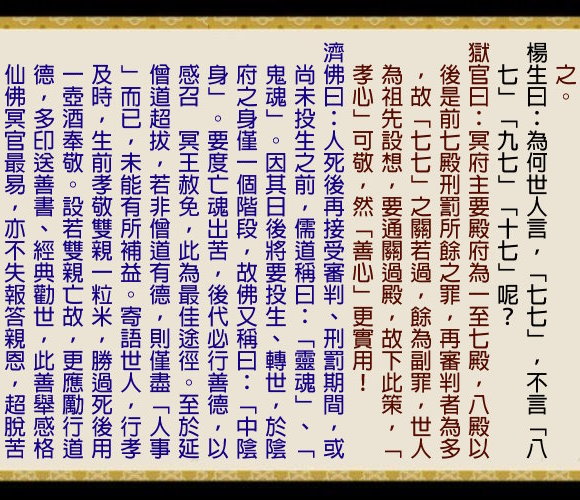 之。
楊生曰：為何世人言，「七七」，不言「八
七」「九七」「十七」呢？
獄官曰：冥府主要殿府為一至七殿，八殿以
後是前七殿刑罰所餘之罪，再審判者為多
，故「七七」之關若過，餘為副罪，世人
為祖先設想，要通關過殿，故下此策，「
孝心」可敬，然「善心」更實用！
濟佛曰：人死後再接受審判、刑罰期間，或
尚未投生之前，儒道稱曰：「靈魂」、「
鬼魂」。因其日後將要投生、轉世，於陰
府之身僅一個階段，故佛又稱曰：「中陰
身」。要度亡魂出苦，後代必行善德，以
感召　冥王赦免，此為最佳途徑。至於延
僧道超拔，若非僧道有德，則僅盡「人事
」而已，未能有所補益。寄語世人，行孝
及時，生前孝敬雙親一粒米，勝過死後用
一壺酒奉敬。設若雙親亡故，更應勵行道
德，多印送善書、經典勸世，此善舉感格
仙佛冥官最易，亦不失報答親恩，超脫苦